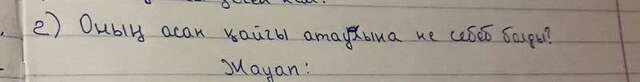 г) Оның асан қайғы атауына не себеб болды?
Жауап: